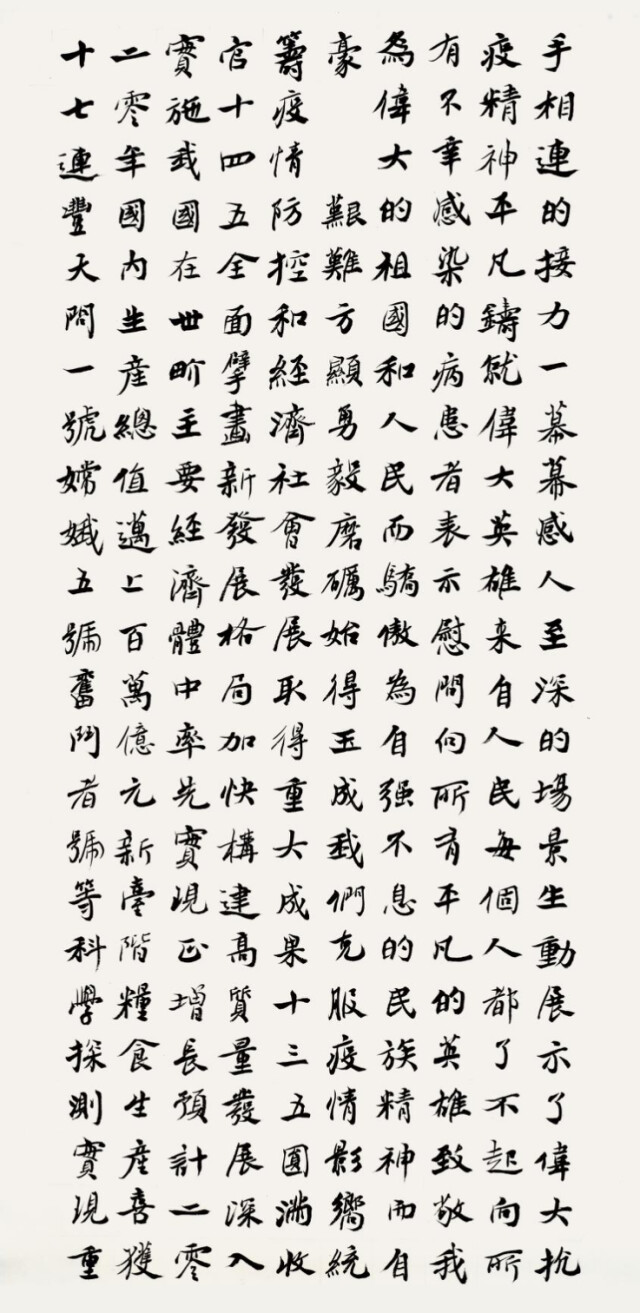 手相連的接力一幕幕感人至深的場景生動展示了偉大抗
疫精神平凡鑄就偉大英雄来自人民每個人都了不起向所
有不幸感染的病患者表示慰問向所有平凡的英雄致敬我
為偉大的祖國和人民而驕傲為自强不息的民族精神而自
豪 艱難方顯勇毅磨礪始得玉成我們克服疫情影響統
籌疫情防控和經濟社會發展取得重大成果十三五圓滿收
官十四五全面擘畫新發展格局加快構建高質量發展深入
實施我國在世界主要經濟體中率先實現正增長預計二零
二零年國內生産總值邁上百萬億元新臺階糧食生産喜獲
十七連豐天問一號嫦娥五號奮鬥者號等科學探測實現重